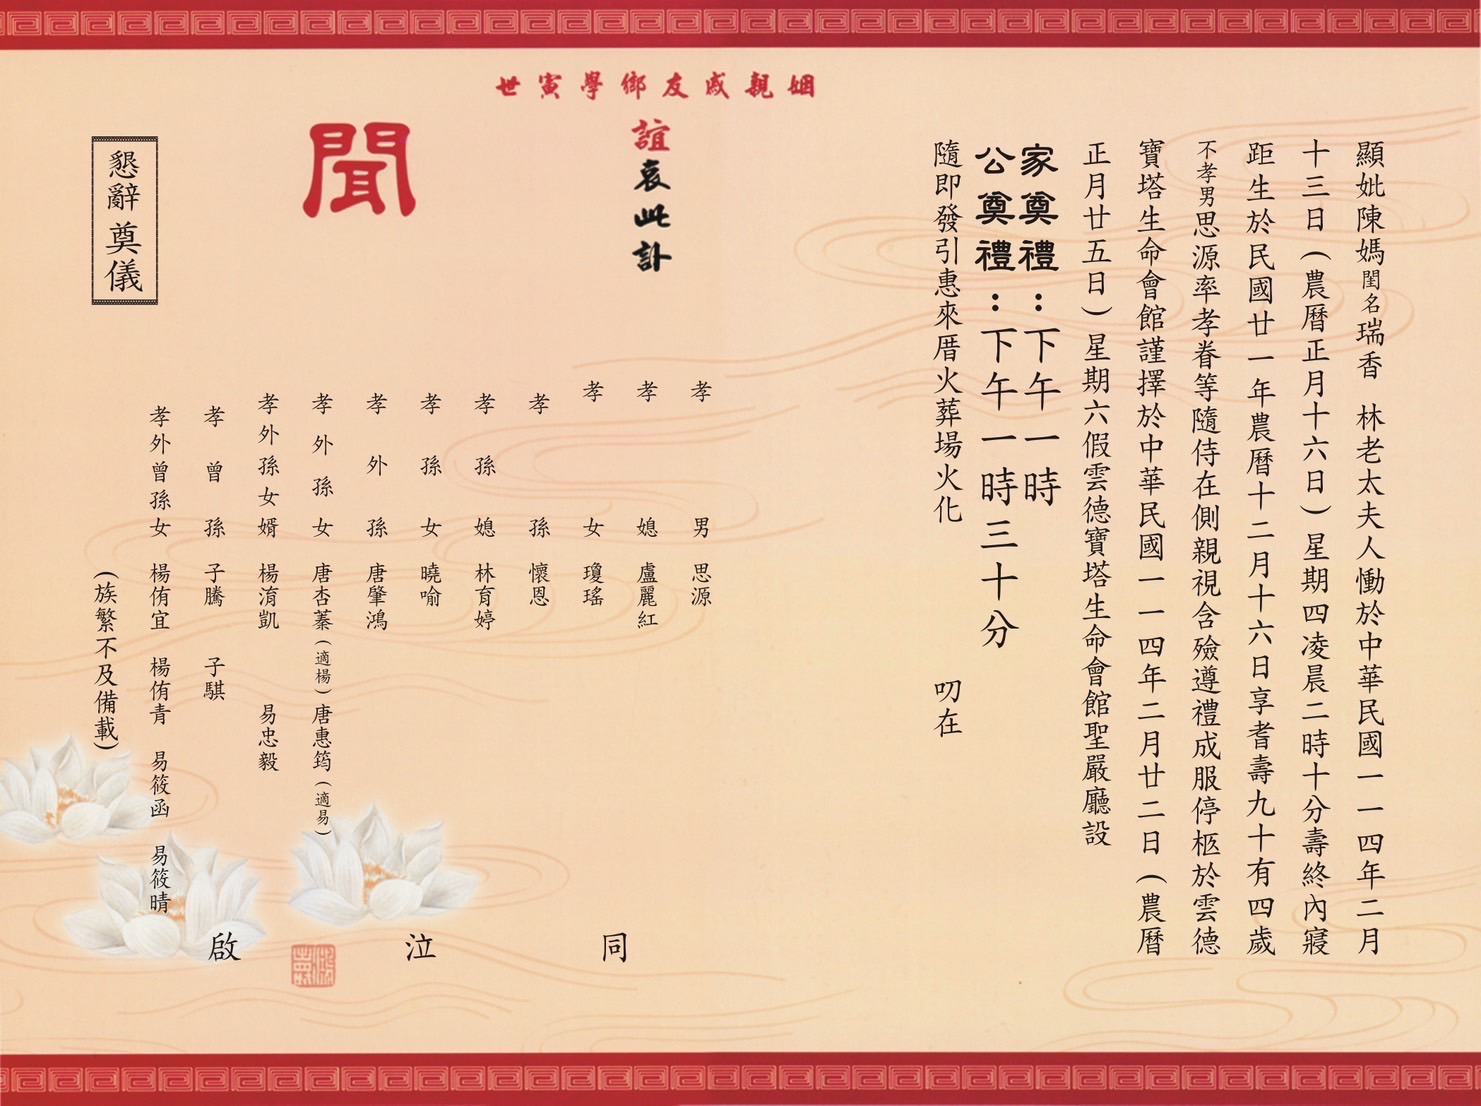 顯妣陳媽閨名瑞香　林老太夫人慟於中華民國一一四年二月
十三日(農曆正月十六日)星期四凌晨二時十分壽終內寢
距生於民國廿一年農曆十二月十六日享耆壽九十有四歲
不孝男思源率孝眷等隨侍在側親視含殮遵禮成服停柩於雲德
寶塔生命會館謹擇於中華民國一一四年二月廿二日(農曆
正月廿五日)星期六假雲德寶塔生命會館聖嚴廳設
家奠禮:下午一時
公奠禮:下午一時三十分
隨即發引惠來厝火葬場火化　叨在
姻親戚友鄉學寅世
誼哀此訃
聞
孝男　思源
孝媳　盧麗紅
孝女　瓊瑤
孝孫　懷恩
孝孫媳　林育婷
孝孫女　曉喻
孝外孫　唐肇鴻
孝外孫女　唐杏蓁(適楊)唐惠筠(適易)
孝外孫女婿　楊淯凱　易忠毅
孝曾孫　子騰　子騏
孝外曾孫女　楊侑宜　楊侑青　易筱函　易筱晴
(族繁不及備載)
同　泣　啟
懇辭奠儀